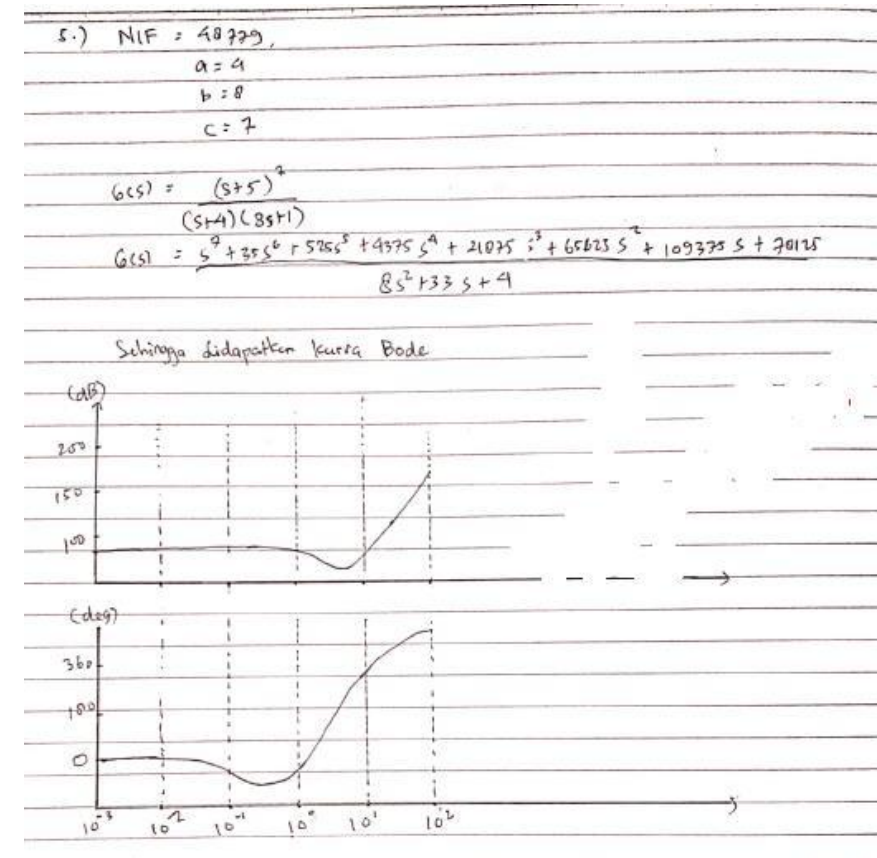 5.) NIF : 48779,
a = 4
b = 8
c = 7
G(s) = (s+5)^7
(s+4)(8s+1)
G(s) = s^7 + 35s^6 + 525s^5 + 4375 s^4 + 21875 s^3 + 65625 s^2 + 109375 s + 78125
8s^2 + 33 s + 4
Sehingga didapatkan kurva Bode
(dB)
200
150
100
(deg)
360
180
0
10^-3 10^-2 10^-1 10^0 10^1 10^2